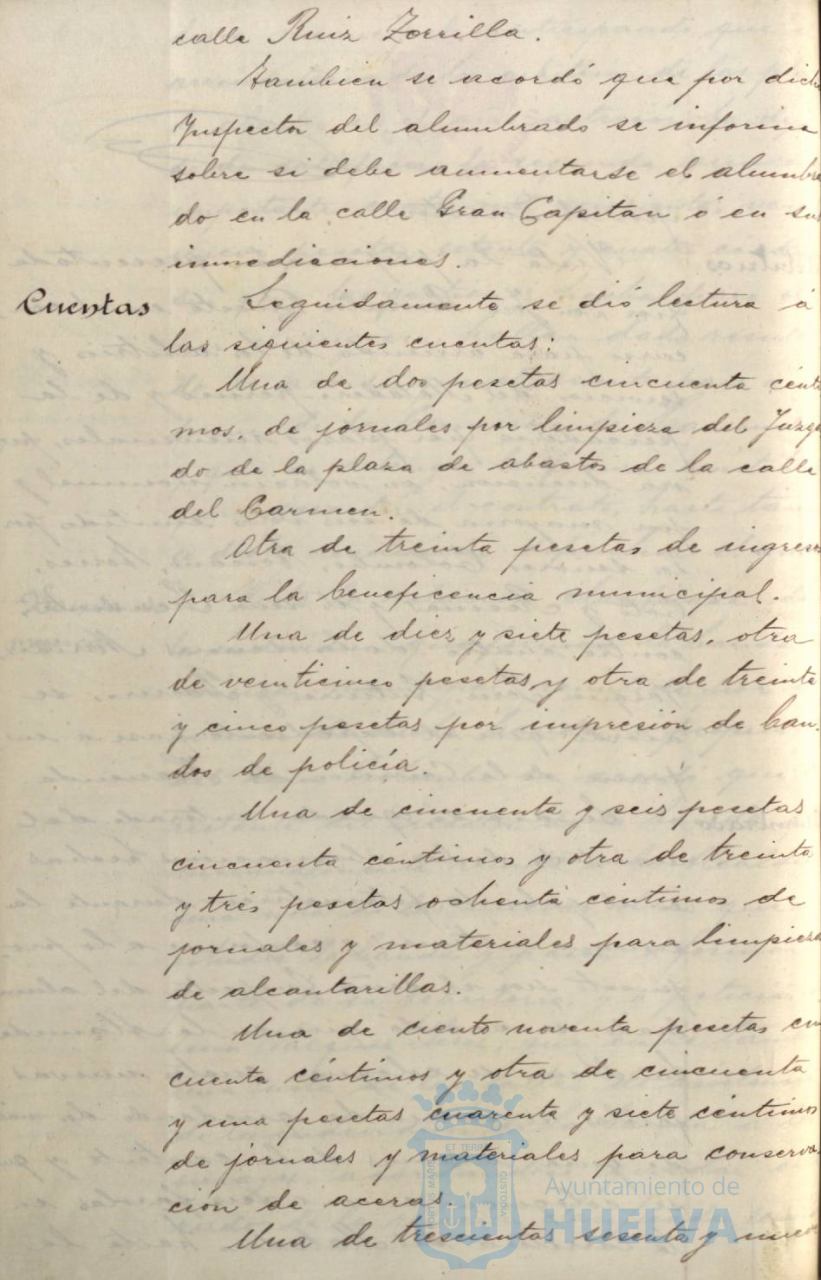 calle Ruiz Zorrilla.
tambien se acordó que por dicho
Inspector del alumbrado se informe
sobre si debe aumentarse el alumbra
do en la calle Gran Capitan ó en sus
inmediaciones.
Cuentas
Seguidamente se dió lectura á
las siguientes cuentas:
Una de dos pesetas cincuenta cénti
mos, de jornales por limpieza del Juzga
do de la plaza de abastos de la calle
del Carmen.
Otra de treinta pesetas de ingresos
para la beneficencia municipal.
Una de diez y siete pesetas, otra
de veinticinco pesetas y otra de treinta
y cinco pesetas por impresión de ban-
dos de policía.
Una de cincuenta y seis pesetas
cincuenta céntimos y otra de treinta
y tres pesetas ochenta céntimos de
jornales y materiales para limpieza
de alcantarillas.
Una de ciento noventa pesetas cin
cuenta céntimos y otra de cincuenta
y una pesetas cuarenta y siete céntimos
de jornales y materiales para conserva-
ción de aceras.
Una de trescientas sesenta y nueve
Ayuntamiento de
HUELVA